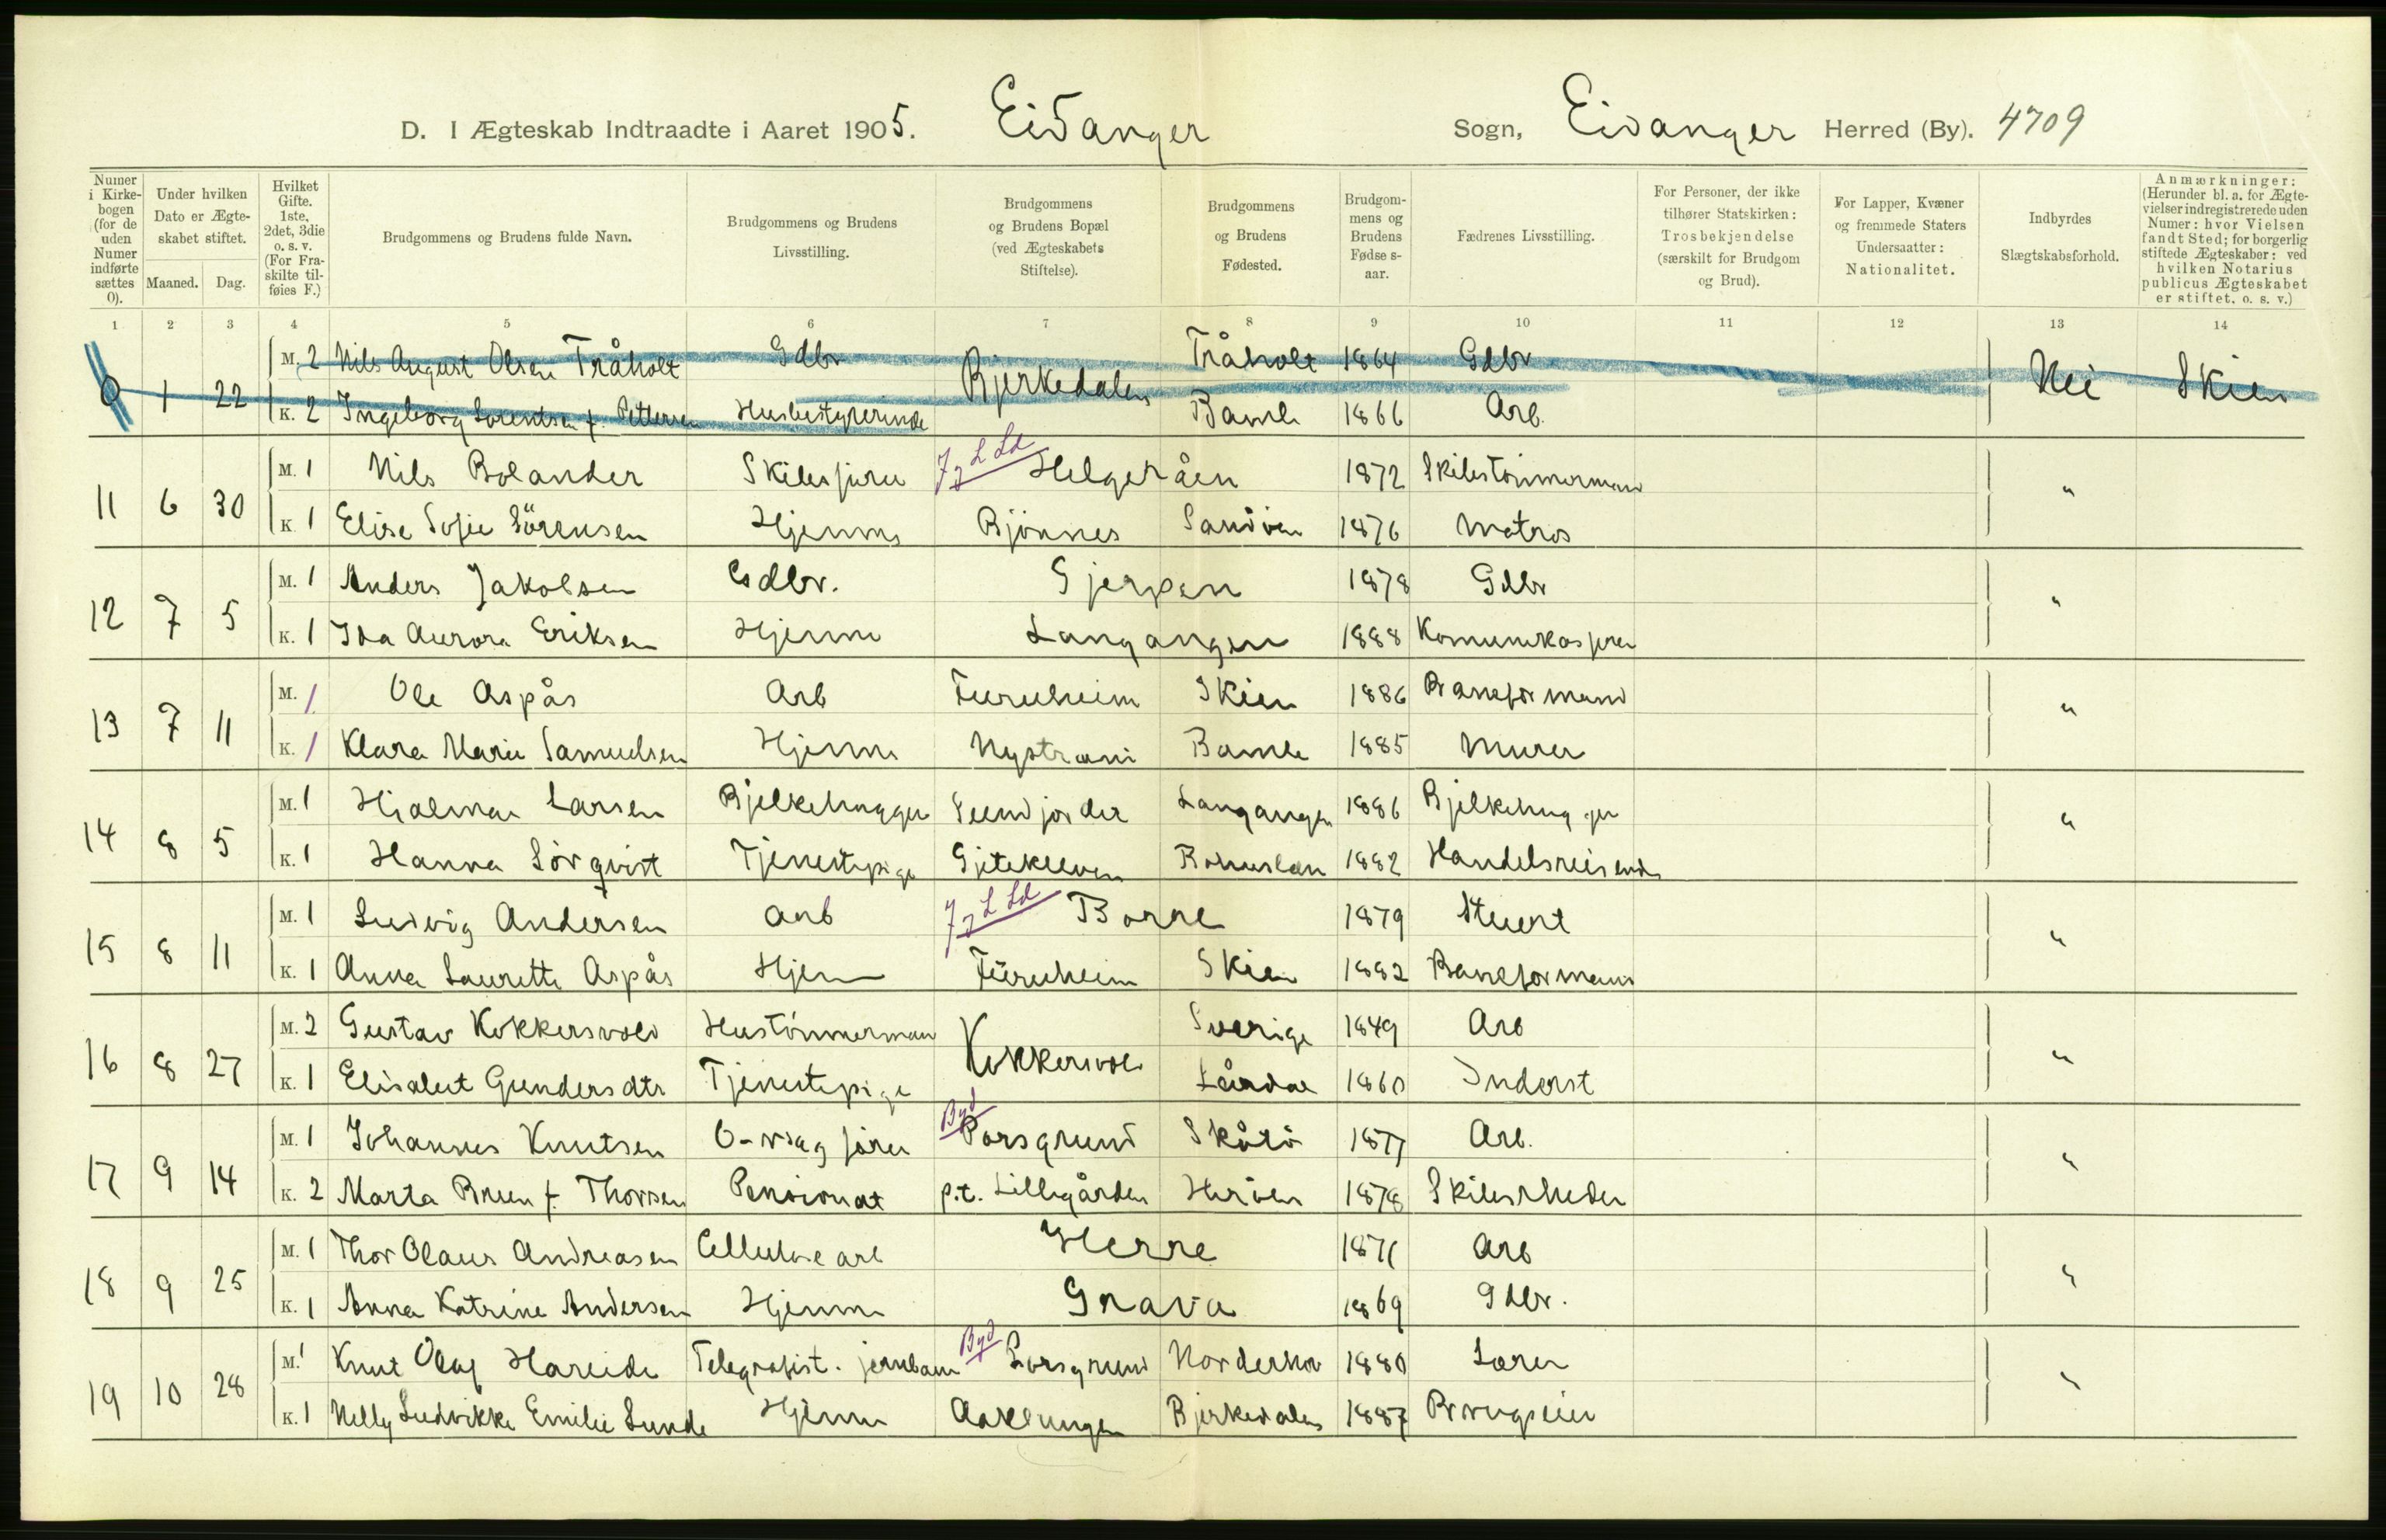 D. I Ægteskab Indtraadte i Aaret 1905. Eidanger Sogn, Eidanger Herred (By). 4709
Numer i Kirkebogen (for de uden Numer indførte sættes 0).
Under hvilken Dato er Ægteskabet stiftet.
Maaned. Dag.
Hvilket Gifte. 1ste, 2det, 3die o. s. v. (For Fraskilte tilføies F.)
Brudgommens og Brudens fulde Navn.
Brudgommens og Brudens Livsstilling.
Brudgommens og Brudens Bopæl (ved Ægteskabets Stiftelse).
Brudgommens og Brudens Fødested.
Brudgommens og Brudens Fødselsaar.
Fædrenes Livsstilling.
For Personer, der ikke tilhører Statskirken: Trosbekjendelse (særskilt for Brudgom og Brud).
For Lapper, Kvæner og fremmede Staters Undersaatter: Nationalitet.
Indbyrdes Slægtskabsforhold.
Anmærkninger: (Herunder bl. a. for Ægtevielser indregistrerede uden Numer: hvor Vielsen fandt Sted; for borgerlig stiftede Ægteskaber: ved hvilken Notarius publicus Ægteskabet er stiftet. o. s. v.)
1 2 3 4 5 6 7 8 9 10 11 12 13 14
M. 2 Nils August Olsen Tråholt Gdbr Bjerkedalen Tråholt 1864 Gdbr
0 1 22 Nei Skien
K. 2 Ingeborg Lorentsen f. Pettersen Husbestyrerinde Bamle 1866 Arb.
M. 1 Nils Bolander Skibsfører Helgeråen 1872 Skibstømmermand
11 6 30 "
K. 1 Elise Sofie Sörensen Hjemme Bjönnes Sandöen 1876 Matros
M. 1 Anders Jakobsen Gdbr. Gjerpen 1878 Gdbr
12 7 5 "
K. 1 Ida Aurora Eriksen Hjemme Langangen 1888
M. 1 Ole Aspås Arb Furuheim Skien 1886 Baneformand
13 7 11 "
K. 1 Klara Marie Samuelsen Hjemme Nystrand Bamle 1885 Murer
M. 1 Hjalmar Larsen Bjelkehugger Langangen 1886 Bjelkehugger
14 8 5 "
K. 1 Hanna Sörqvist Tjenestepige Gjetekleven Bohuslen 1882 Handelsreisende
M. 1 Ludvig Andersen Arb Borre 1879 Stuert
15 8 11 "
K. 1 Anna Laurette Aspås Hjem Furuheim Skien 1882 Baneformand
M. 2 Gustav Kokkersvold Hustömmerman Kokkersvold Sverige 1849 Arb
16 8 27 "
K. 1 Elisabet Gundersdtr Tjenestepige Lårdal 1860 Inderst
Byd
M. 1 Johannes Knutsen Porsgrund Skåtö 1877 Arb.
17 9 14 "
K. 2 Marta Bruen f. Thorsen Pensionat p.t. Lillegården 1878 Skibsrheder
M. 1 Thor Olaus Andreasen Cellulose arb Herre 1871 Arb
18 9 25 "
K. 1 Anna Katrine Andersen Hjemme Grava 1869 Gdbr.
Byd
M. 1 Knut Olaf Hareide Telegrafist. jernbane Porsgrund Norderhov 1880 Lærer
19 10 28 "
K. 1 Nelly Ludvikke Emilie Lunde Hjemme Aaklungen Bjerkedalen 1887 Brugseier